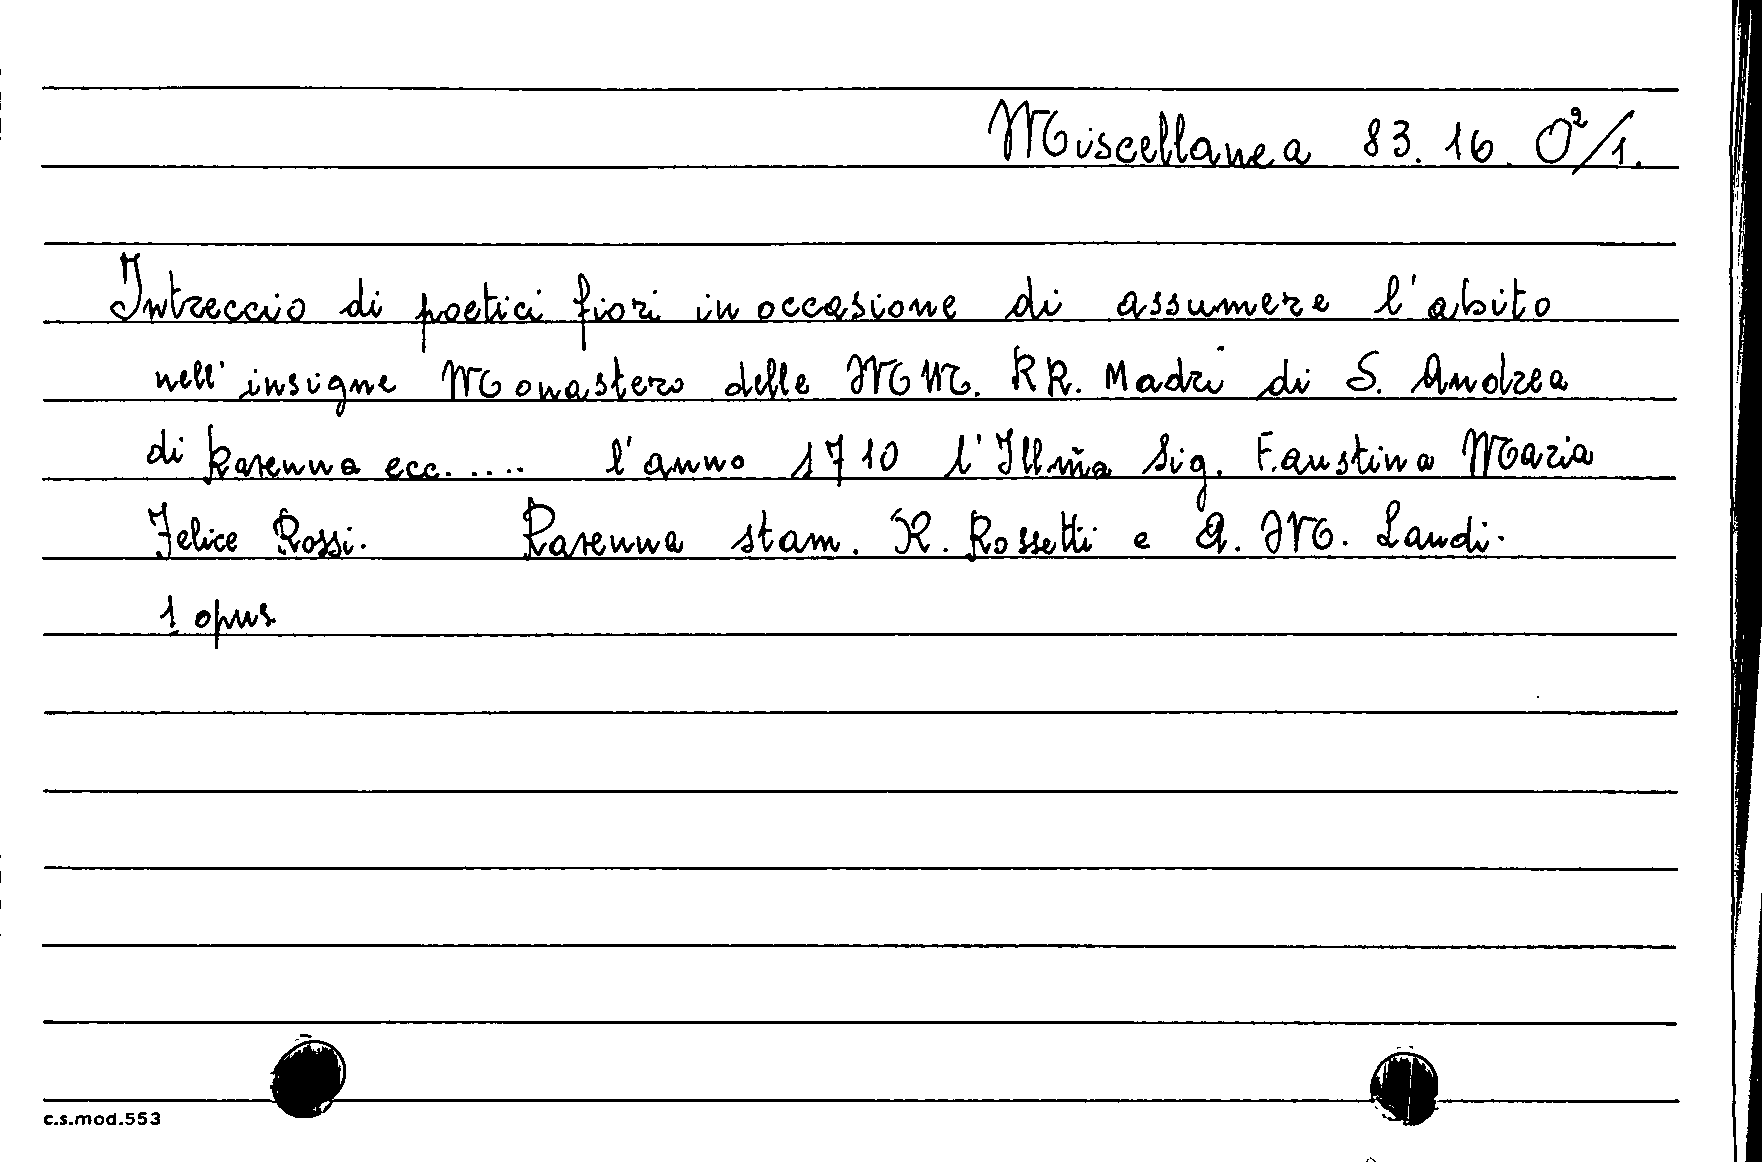 Miscellanea 83. 16. O²/1.
Intreccio di poetici fiori in occasione di assumere l'abito
nell' insigne Monastero delle MM. RR. Madri di S. Andrea
di Ravenna ecc..... l'anno 1710 l'Illm̃a Sig. Faustina Maria
Felice Rossi. Ravenna stam. R. Rossetti e A. M. Landi.
1 opus
c.s.mod.553